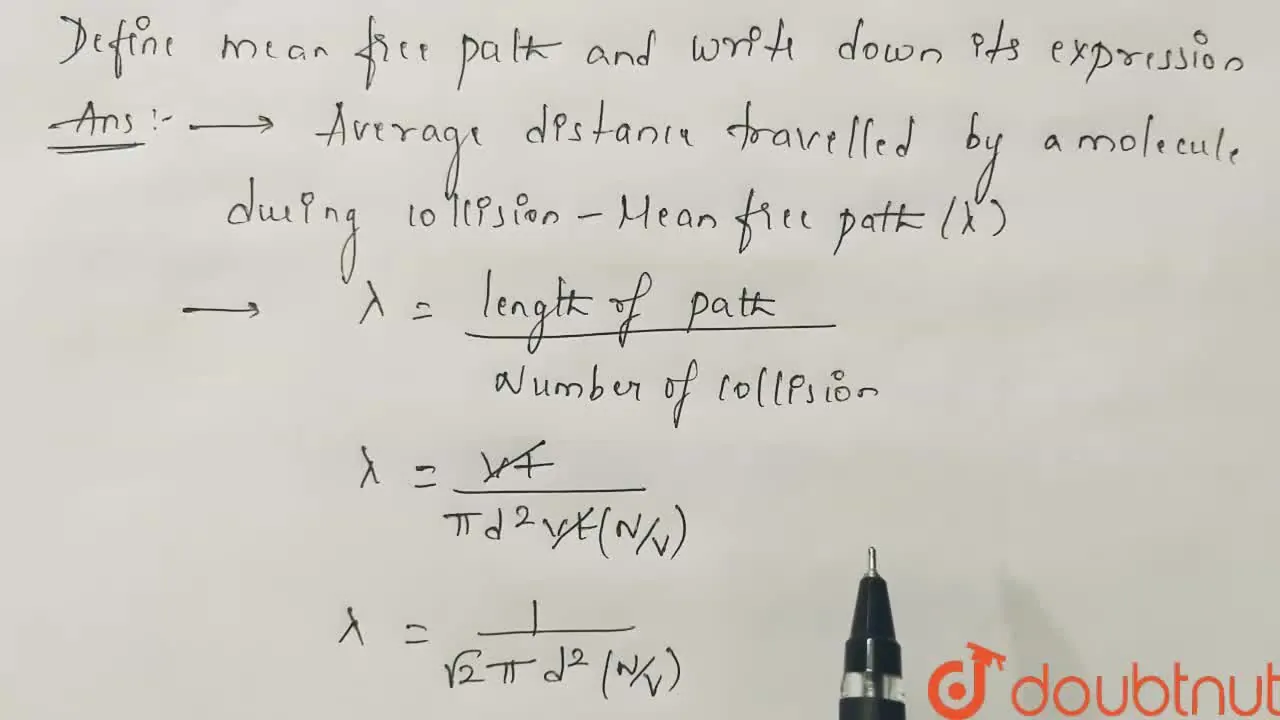 Define mean free path and write down its expression
Ans :- → Average distance travelled by a molecule
during collision - Mean free path (λ)
→ λ = length of path
Number of collision
λ = vt
πd² vt (N/V)
λ = 1
√2 π d² (N/V)
doubtnut